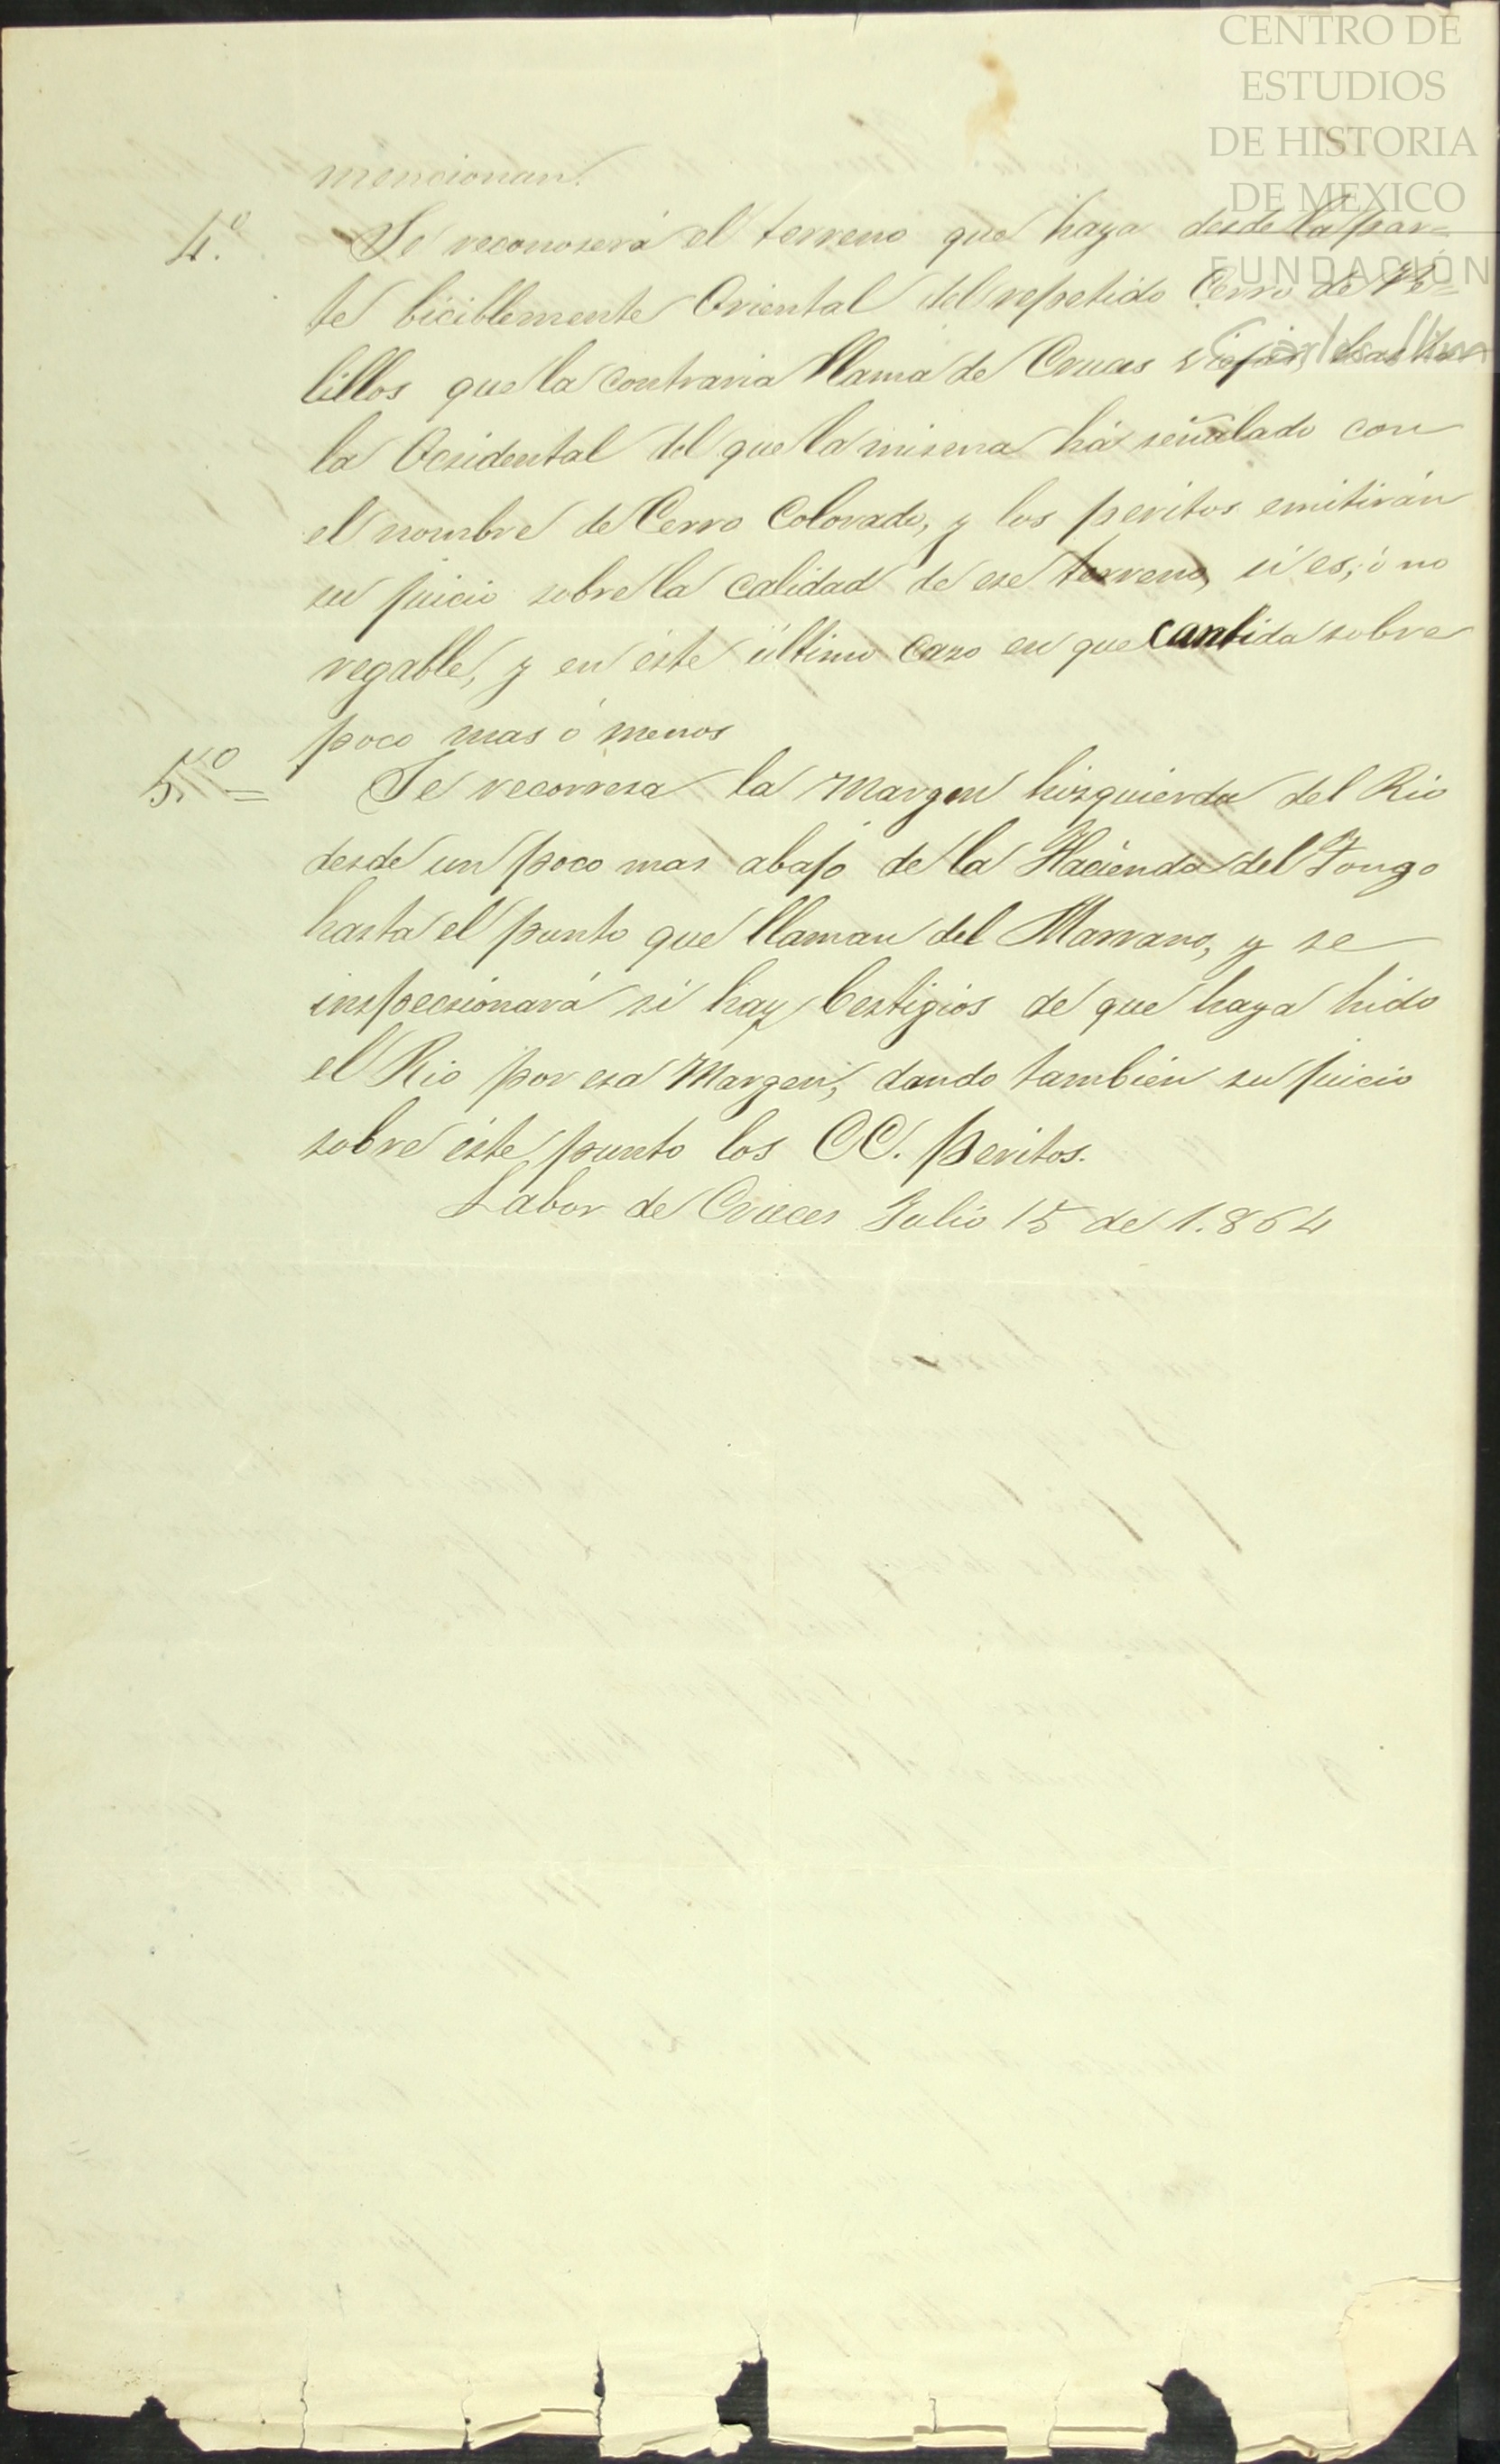 CENTRO DE
ESTUDIOS
DE HISTORIA
DE MEXICO
FUNDACIÓN
Carlos Slim
mencionan.
4.º Se reconoserá el terreno que haya desde la par=
te biciblemente Oriental del repetido Cerro de
lillos que la contraria llama de Cruces viejas, hasta
la Ocsidental del que la misma há señalado con
el nombre de Cerro Colorado, y los peritos emitirán
su juicio sobre la calidad de ese terreno, si es, ó no
regable, y en éste último caso en que cantida sobre
poco mas ó menos
5.º = Se recorrera la Margen hizquierda del Rio
desde un poco mas abajo de la Hacienda del Tongo
hasta el punto que llaman del Marrano, y se
inspecsionará si hay bestigios de que haya hido
el Rio por esa Margen, dando tambien su juicio
sobre éste punto los CC. peritos.
Labor de Cruces Julio 15 de 1.864